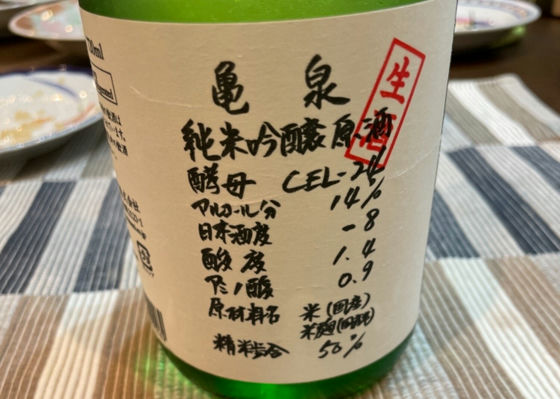 亀泉
生酒
純米吟醸原酒
酵母 CEL-24
アルコール分 14%
日本酒度 -8
酸度 1.4
アミノ酸 0.9
原材料名 米(国産)
米麹(国産米)
精米歩合 50%